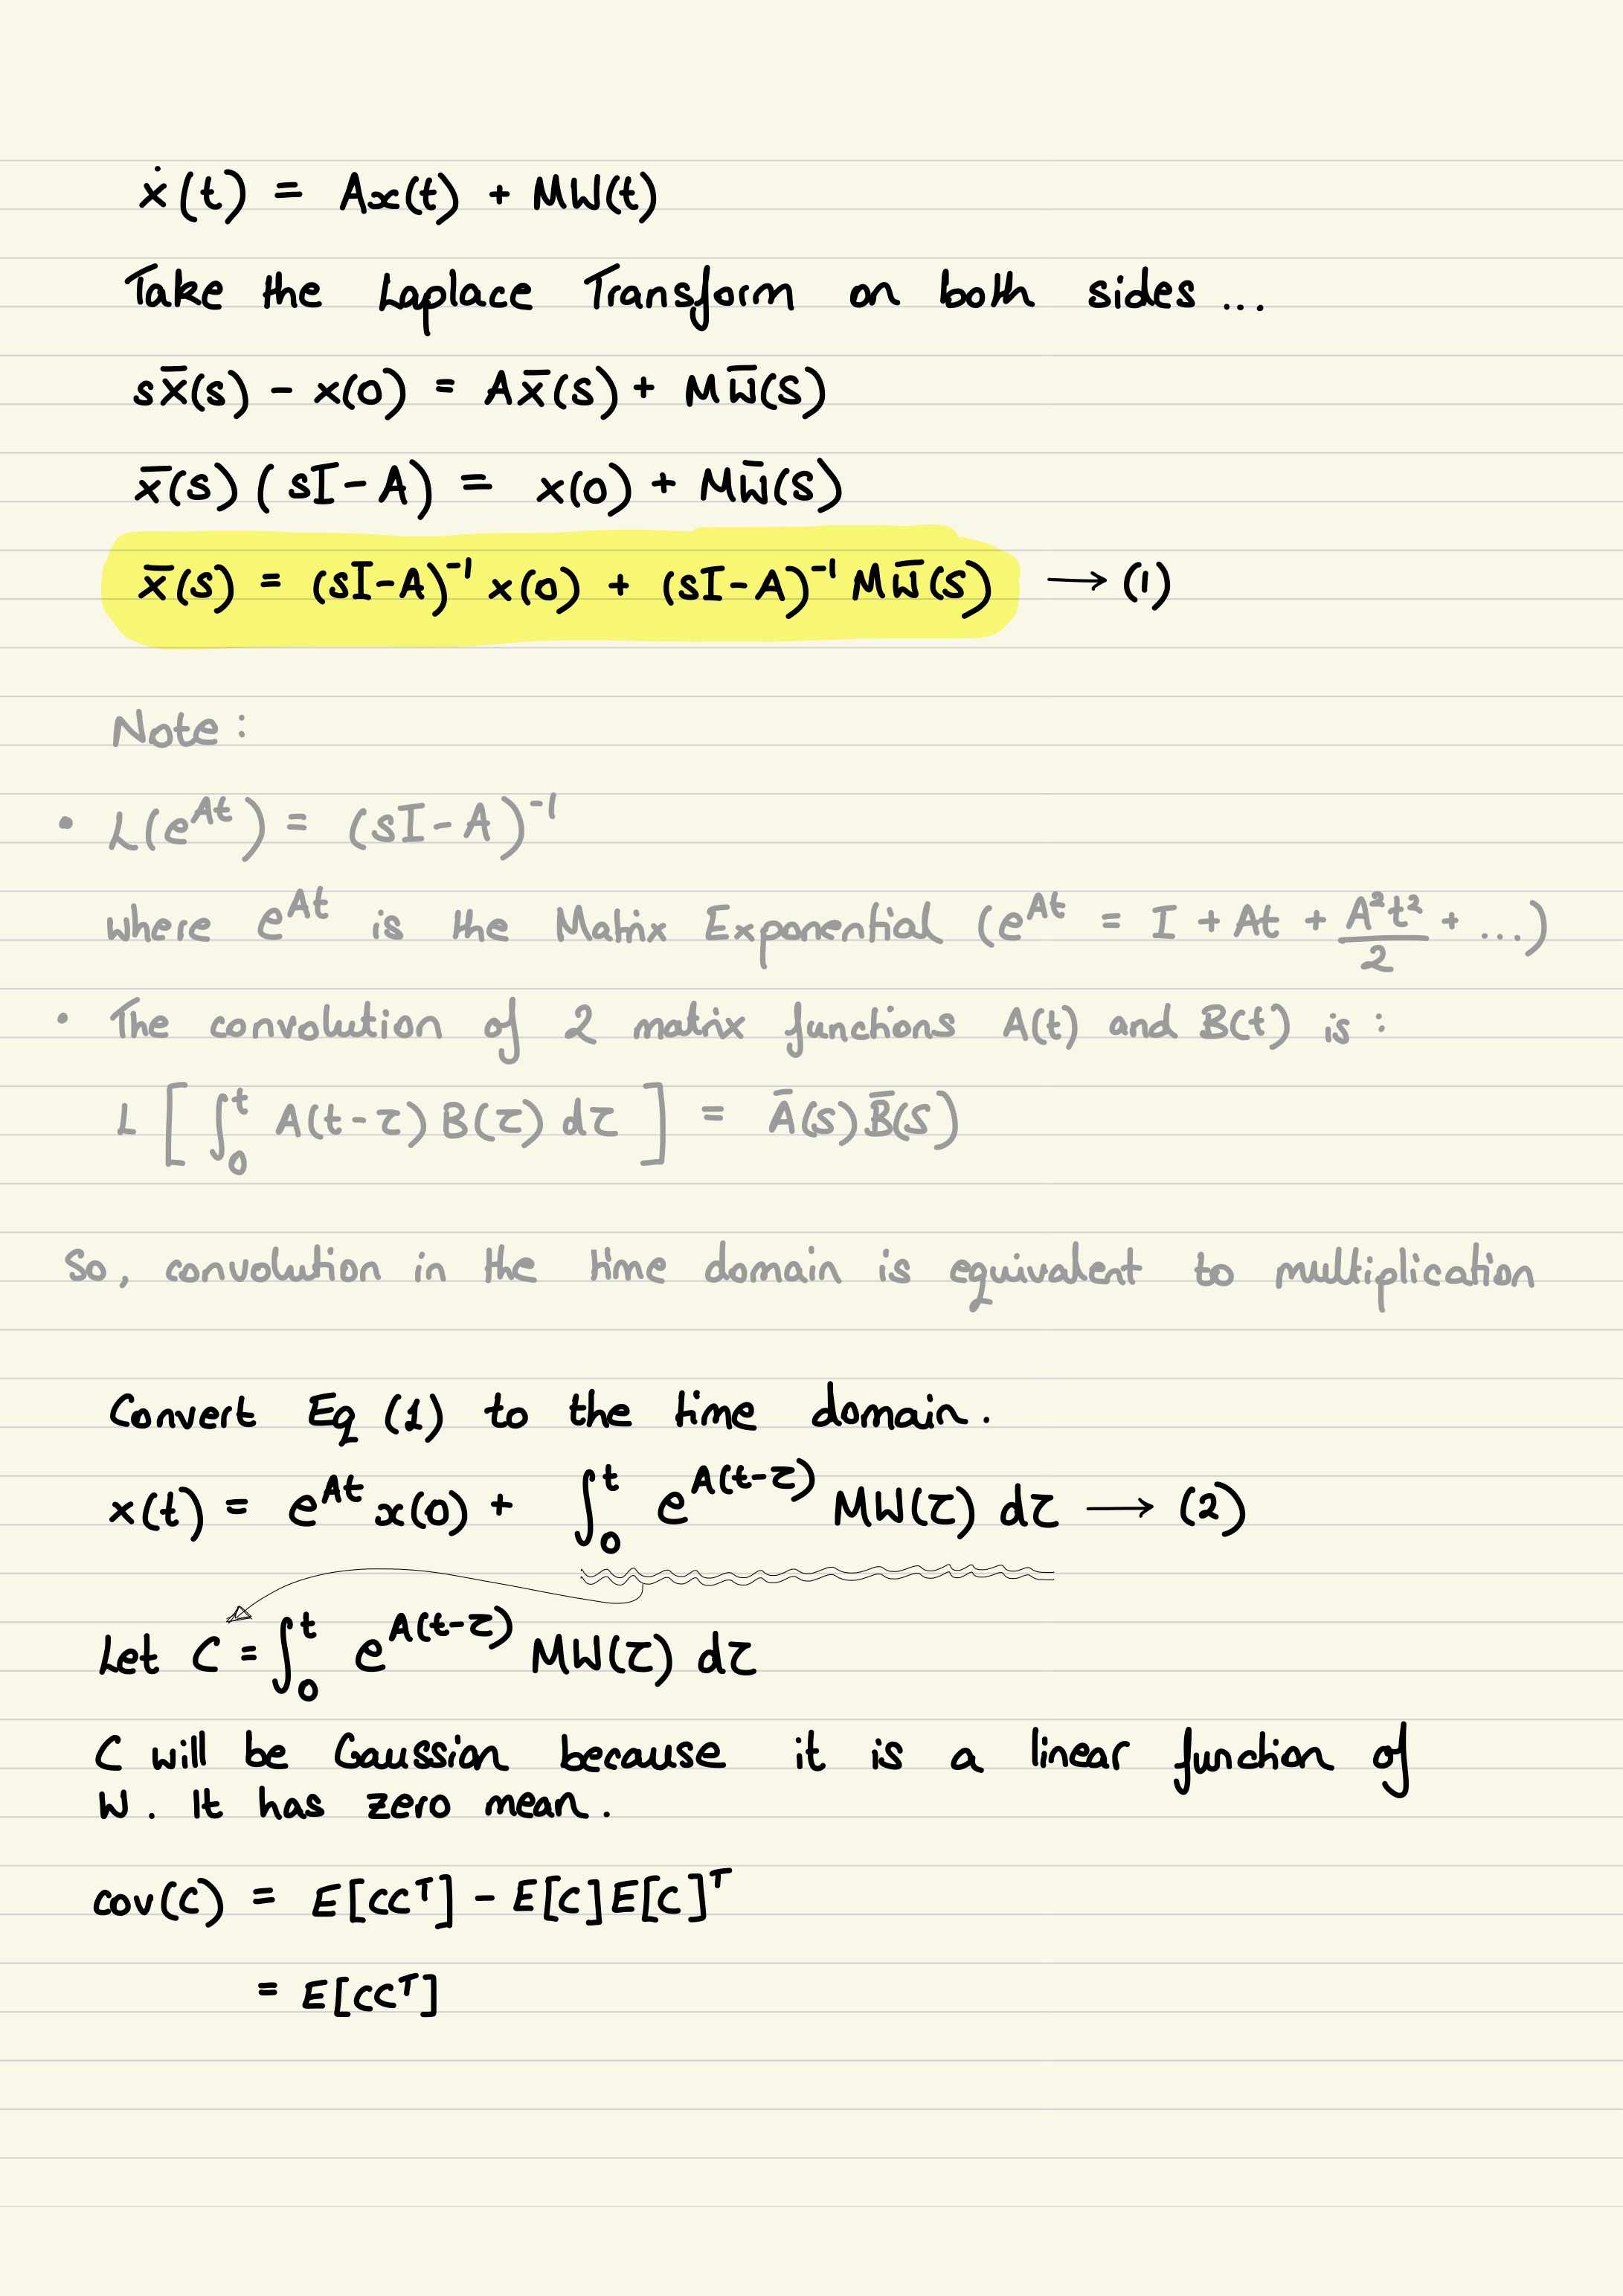 ẋ(t) = Ax(t) + MW(t)
Take the Laplace Transform on both sides ...
sx̄(s) - x(0) = Ax̄(s) + Mw̄(s)
x̄(s) (sI-A) = x(0) + Mw̄(s)
x̄(s) = (sI-A)⁻¹ x(0) + (sI-A)⁻¹ Mw̄(s) → (1)
Note :
• L(e^{At}) = (sI-A)⁻¹
where e^{At} is the Matrix Exponential (e^{At} = I + At + A²t²/2 + ...)
• The convolution of 2 matrix functions A(t) and B(t) is :
L [ ∫₀ᵗ A(t-τ) B(τ) dτ ] = Ā(s)B̄(s)
So, convolution in the time domain is equivalent to multiplication
Convert Eq (1) to the time domain.
x(t) = e^{At} x(0) + ∫₀ᵗ e^{A(t-τ)} MW(τ) dτ → (2)
Let C = ∫₀ᵗ e^{A(t-τ)} MW(τ) dτ
C will be Gaussian because it is a linear function of
W. It has zero mean.
cov(C) = E[CCᵀ] - E[C]E[C]ᵀ
= E[CCᵀ]